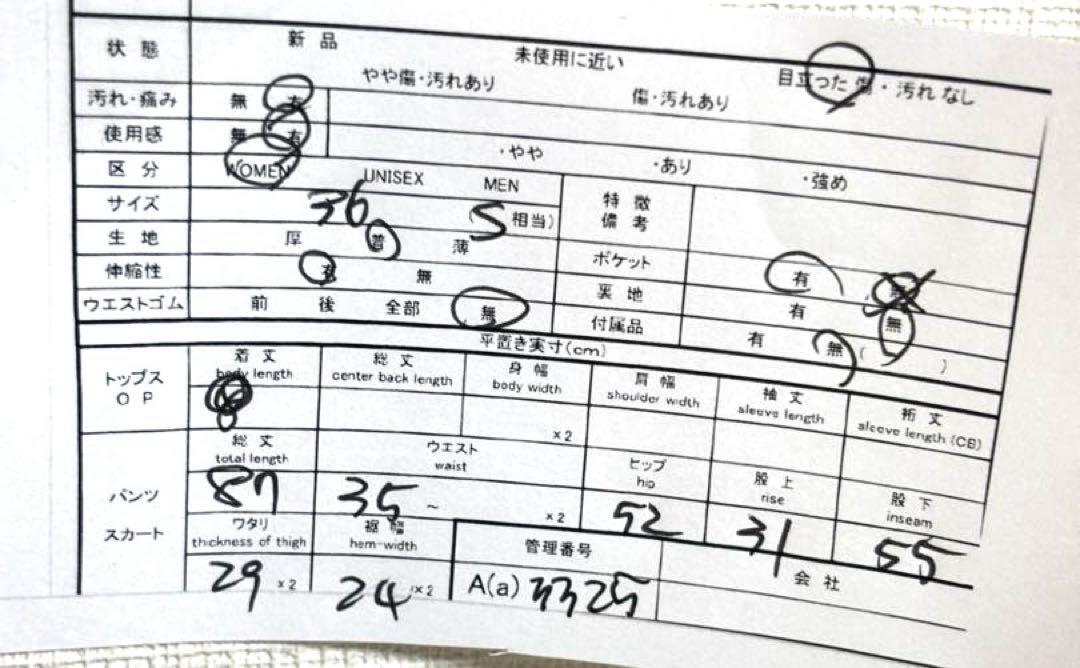 状態 新品 未使用に近い 目立った傷・汚れなし
やや傷・汚れあり 傷・汚れあり
汚れ・痛み 無 有
使用感 無 有 ・やや ・あり ・強め
区分 WOMEN UNISEX MEN 特徴備考
サイズ 36 S相当)
生地 厚 普 薄 ポケット 有 無
伸縮性 有 無 裏地 有 無
ウエストゴム 前 後 全部 無 付属品 有 無 ( )
平置き実寸(cm)
トップス OP 着丈 総丈 身幅 肩幅 袖丈 裄丈
body length center back length body width shoulder width sleeve length sleeve length (CB)
×2
パンツ スカート 総丈 ウエスト ヒップ 股上 股下
total length waist hip rise inseam
87 35 ~ ×2 52 31 55
ワタリ 裾幅 管理番号 会社
thickness of thigh hem-width
29 ×2 24 ×2 A(a) 3325